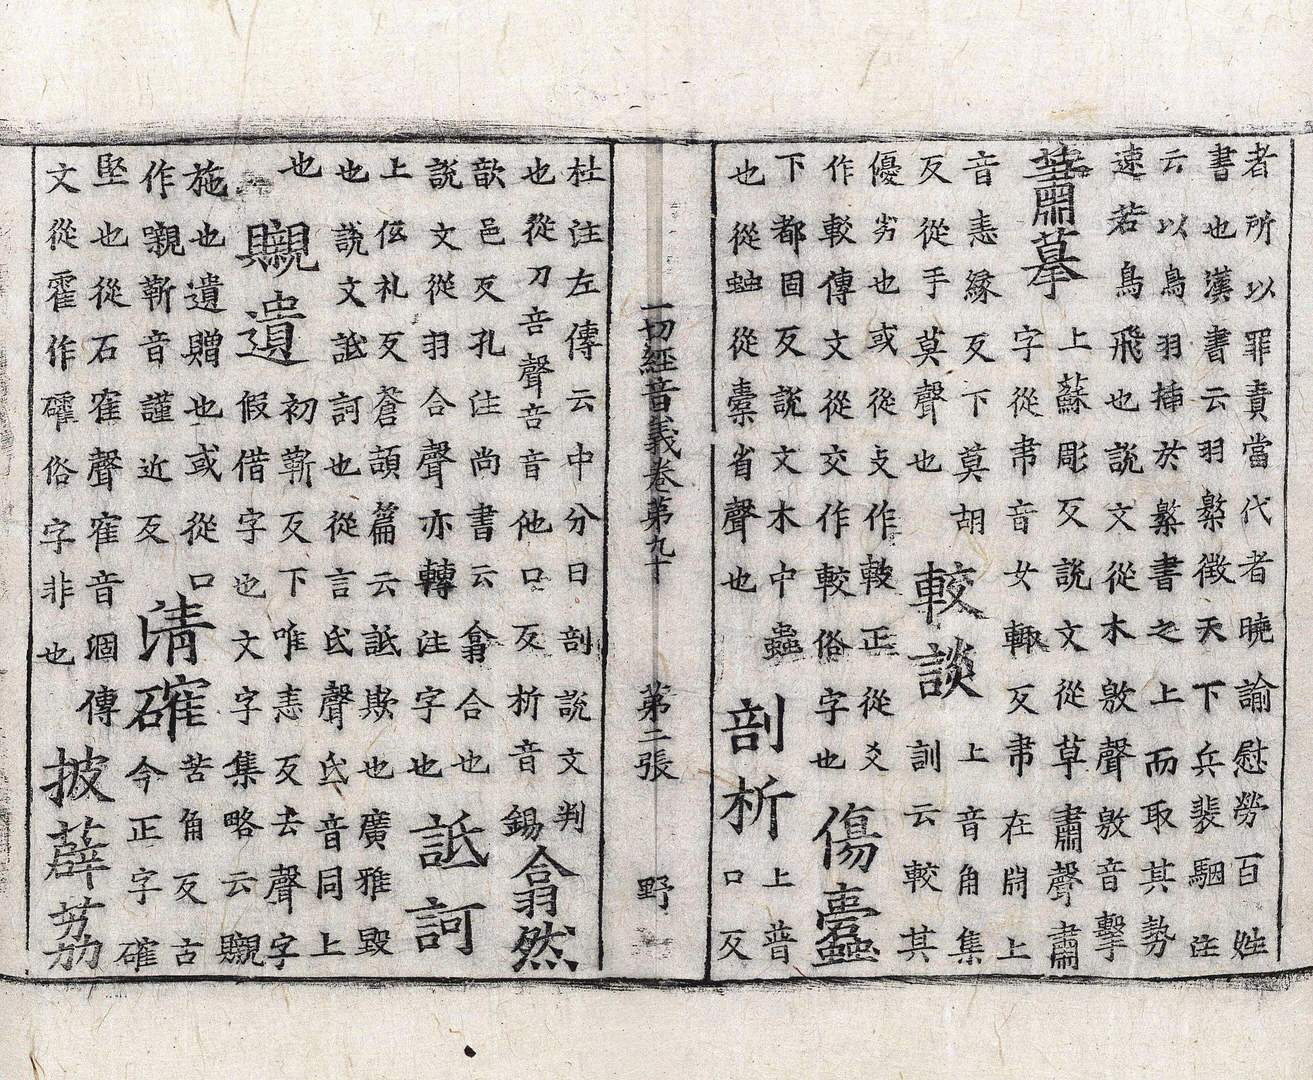 者所以罪責當代者曉諭慰勞百姓
書也漢書云羽檄徵天下兵裴駰注
云以鳥羽插於檄書之上而取其勢
速若鳥飛也說文從木敫聲敫音擊
蕭摹
上蘇彫反說文從草肅聲肅
字從帇音女輒反帇在𣶒上
音恚緣反下莫胡
反從手莫聲也
較談
上音角集
訓云較其
優劣也或從攴作𢽾正從爻
作較傳文從交作較俗字也
傷蠹
下都固反說文木中蟲
也從䖵從橐省聲也
剖析
上普
口反
一切經音義卷第九十 第二張 野
杜注左傳云中分曰剖說文判
也從刀咅聲咅音他口反析音錫
翕然
歆邑反孔注尚書云翕合也
說文從羽合聲亦轉注字也
詆訶
上低礼反蒼頡篇云詆欺也廣雅毀
也說文詆訶也從言氐聲氐音同上
也
䞋遺
初靳反下唯恚反去聲字
假借字也文字集略云䞋
施也遺贈也或從口
作嚫靳音謹近反
清確
苦角反古
今正字確
堅也從石隺聲隺音涸傳
文從霍作礭俗字非也
披薜荔